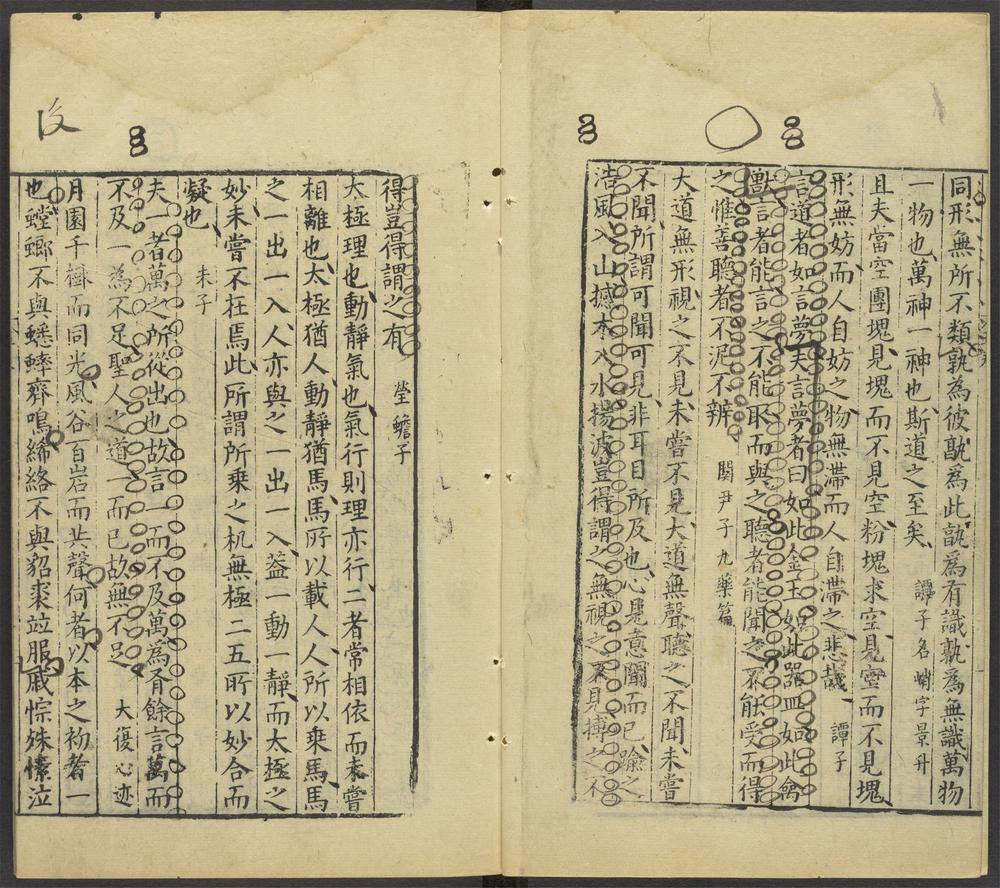 同形無所不類孰為彼孰為此孰為有識孰為無識萬物
一物也萬神一神也斯道之至矣 譚子名峭字景升
且夫當空團塊見塊而不見空粉塊求空見空而不見塊
形無妨而人自妨之物無滯而人自滯之悲哉 譚子
言道者如言夢夫言夢者曰如此金玉如此器皿如此禽
獸言者能言之不能取而與之聽者能聞之不能受而得
之惟善聽者不泥不辨 関尹子九藥篇
大道無形視之不見未嘗不見大道無聲聽之不聞未嘗
不聞所謂可聞可見非耳目所及也心見意聞而已踰之
浩風入山撼木入水揚波豈得謂之無視之不見搏之不
得豈得謂之有 瑩蟾子
太極理也動靜氣也氣行則理亦行二者常相依而未嘗
相離也太極猶人動靜猶馬馬所以載人人所以乗馬馬
之一出一入人亦與之一出一入葢一動一靜而太極之
妙未嘗不在焉此所謂所乗之机無極二五所以妙合而
凝也 朱子
夫一者萬之所從出也故言一而不及萬為有餘言萬而
不及一為不足聖人之道一而已故無不足 大復心迹
月園千樹而同光風谷百岩而共聲何者以本之初者一
也螳螂不與蟋蟀齊鳴絺綌不與貂裘竝服戚悰殊愫泣
後